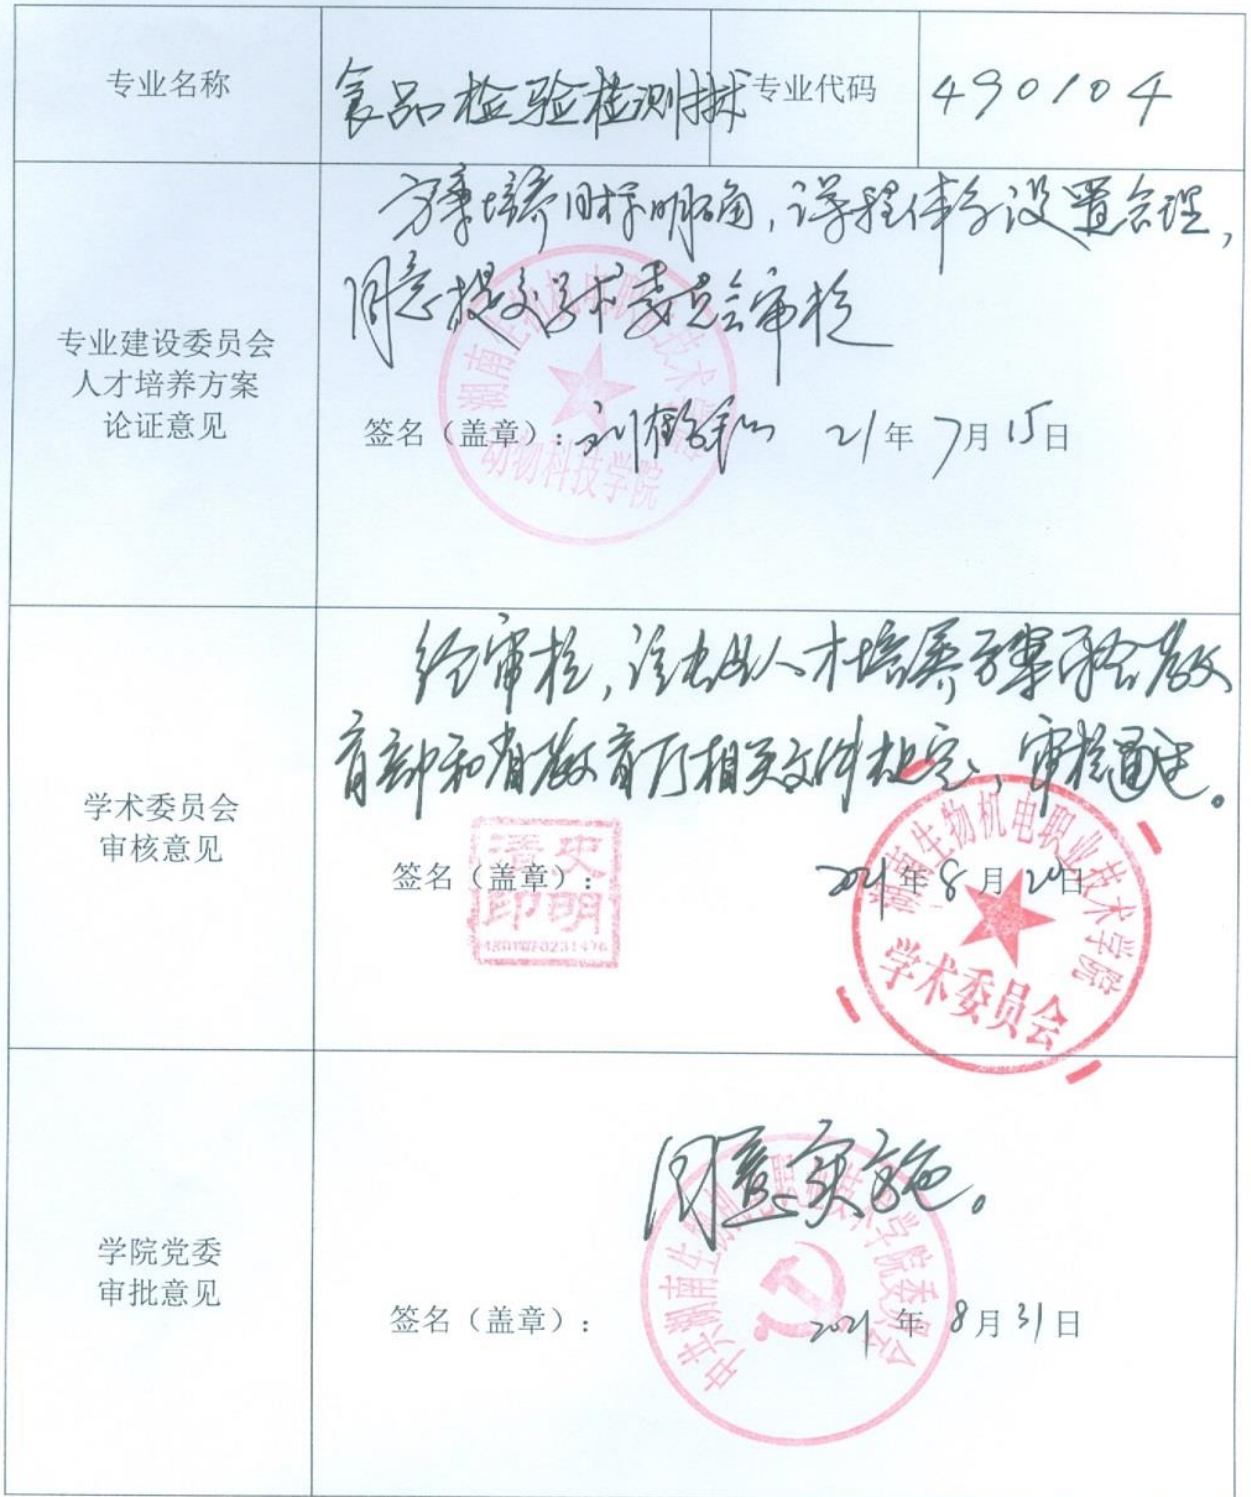 专业名称
食品检验检测技术
专业代码
490104
专业建设委员会
人才培养方案
论证意见
方案培养目标明确，课程体系设置合理，
同意提交学术委员会审核
签名（盖章）：
21年7月15日
湖南生物机电职业技术学院
动物科技学院
学术委员会
审核意见
经审核，该专业人才培养方案符合教
育部和省教育厅相关文件规定，审核通过。
签名（盖章）：
2021年8月20日
史明清印
湖南生物机电职业技术学院
学术委员会
学院党委
审批意见
同意实施。
签名（盖章）：
2021年8月31日
中共湖南生物机电职业技术学院委员会